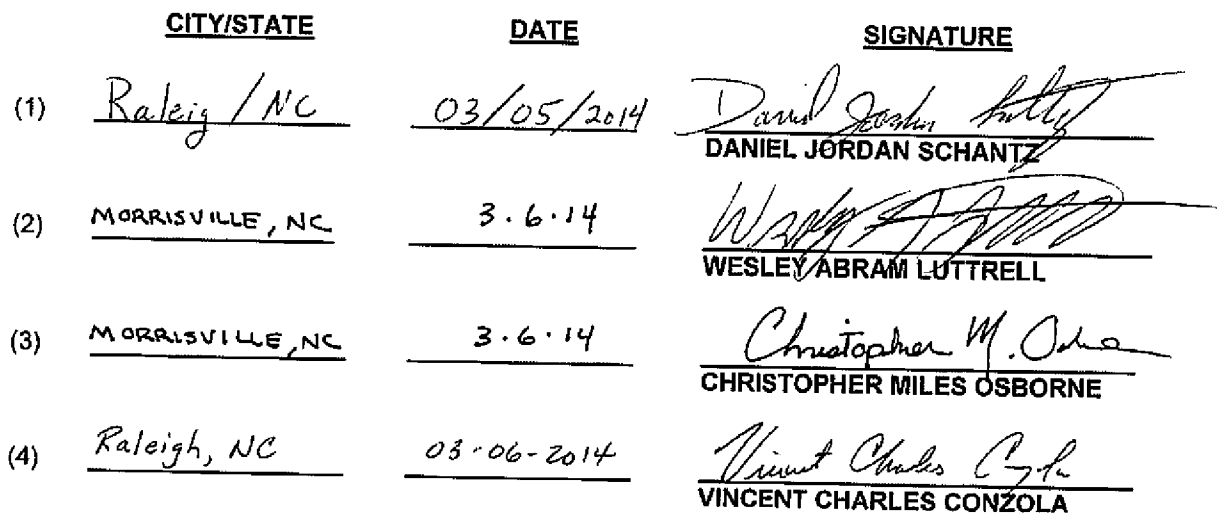 CITY/STATE DATE SIGNATURE
(1) Raleig / NC 03/05/2014 Daniel Jordan
DANIEL JORDAN SCHANTZ
(2) MORRISVILLE, NC 3.6.14 Wesley
WESLEY ABRAM LUTTRELL
(3) MORRISVILLE, NC 3.6.14 Christopher M. Osborne
CHRISTOPHER MILES OSBORNE
(4) Raleigh, NC 03-06-2014 Vincent Charles Conzola
VINCENT CHARLES CONZOLA